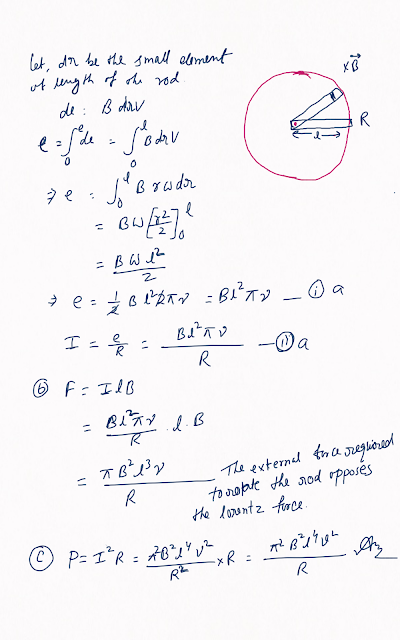 Let, dr be the small element
of length of the rod
de = B dr v
e = ∫₀ᵉ de = ∫₀ˡ B dr v
⇒ e = ∫₀ˡ B r ω dr
= B ω [r²/2]₀ˡ
= B ω l²/2
⇒ e = 1/2 B l² 2πν = Bl²πν — (i) a
I = e/R = Bl²πν/R — (ii) a
x B⃗
R
l
(b) F = I l B
= Bl²πν/R . l . B
= πB²l³ν/R
The external force required
to rotate the rod opposes
the lorentz force.
(C) P = I²R = π²B²l⁴ν²/R² × R = π²B²l⁴ν²/R Ans